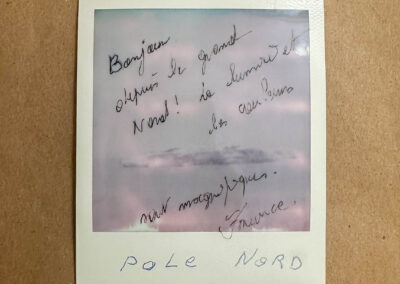 Bonjour
depuis le grand
Nord! La lumière et
les couleurs
sont magnifiques.
POLE NORD